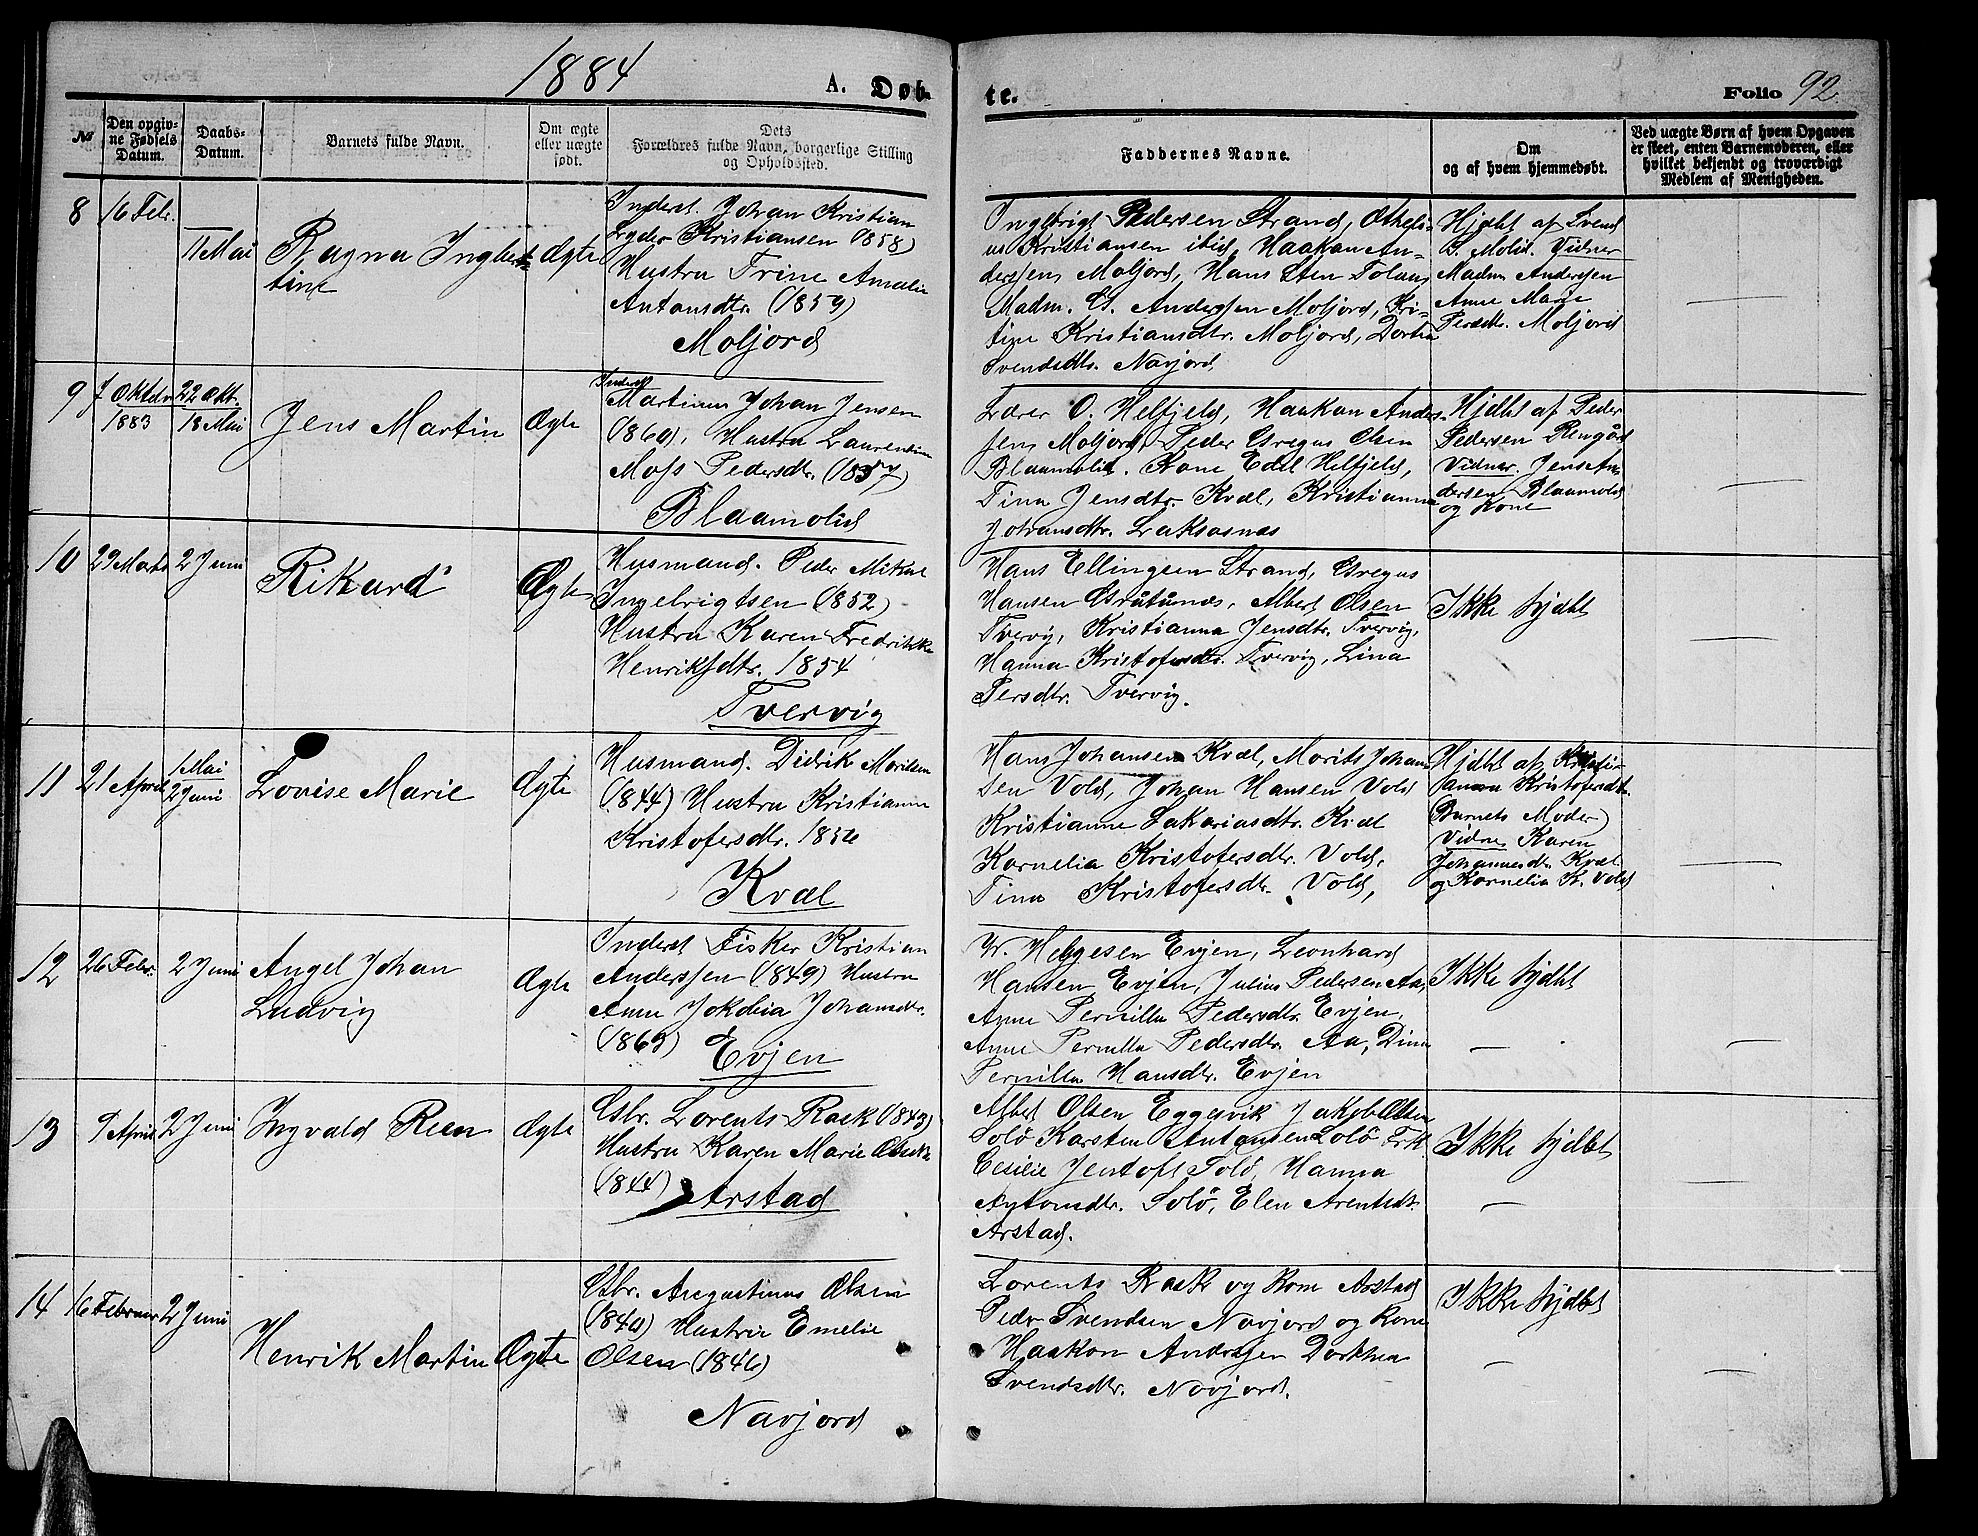 1884
A. Døb-
te.
Folio 92
№
Den opgiv-
ne Fødsels
Datum.
Daabs-
Datum.
Barnets fulde Navn.
Om ægte
eller uægte
født.
Dets
Forældres fulde Navn, borgerlige Stilling
og Opholdssted.
Faddernes Navne.
Om
og af hvem hjemmedøbt.
Ved uægte Børn af hvem Opgaven
er skeet, enten Barnemoderen, eller
hvilket bekjendt og troværdigt
Medlem af Menigheden.
8
16 Febr.
11 Mai
Ragna Ingber-
tine
Ægte
Inderst. Johan Kristian
Lyder Kristiansen (1858)
Hustru Trine Amalie
Antonsdtr. (1859)
Moljord
Ingebrigt Pedersen Strand,
us Kristiansen ibid, Haakon An-
derssen Moljord, Hans Sten
Madm. Andersen Moljord, Kri-
tine Kristiansdtr. Moljord, Dortea
Svendsdtr. Navjord
Hjdbt af Svend
B. Molid. Vidner
Madm Anderssen
Anne Marie
Persdtr. Moljord
9
7 Oktbr
1883
22 Okt.
18 Mai
Jens Martin
Ægte
Inderst
Martinus Johan Jensen
(1860), Hustru Laurentine
Moss Pedersdtr. (1857)
Blaamolid
Lærer O. Helfjeld, Haakon Anders-
sen Moljord, Peder Gregus Olsen
Blaamolid. Kone Edel Helfjeld,
Tina Jensdtr. Kvæl, Kristianna
Johansdtr. Laksosnes
Hjdbt af Peder
Pedersen Rengård
Vidner. Jens An-
dersen Blaamolid
og Kone
10
29 Marts
2 Juni
Rikard
Ægte
Husmand. Peder Mikal
Ingebrigtsen (1852)
Hustru Karen Fredrikke
Henriksdtr. 1854
Tvervig
Hans Ellingsen Strand, Gregus
Hansen, Albert Olsen
Tvervig, Kristianna Jensdtr. Tvervig,
Hanna Kristofersdtr. Tvervig, Lina
Persdtr. Tvervig.
Ikke hjdbt
11
21 April
1 Mai
2 Juni
Lovise Marie
Ægte
Husmand. Didrik Moritsen
(1844) Hustru Kristianne
Kristofersdtr. 1856
Kvæl
Hans Johansen Kvæl, Morits Johan
sen Vold, Johan Hansen Vold
Kristianne Sakariasdtr. Kvæl
Kornelia Kristofersdtr. Vold,
Tina Kristofersdtr. Vold,
Hjdbt af Kristi-
Kristofersdtr.
(Barnets Moder)
Vidner Karen
Johannesdtr. Kvæl
og Kornelia K. Vold
12
26 Febr.
2 Juni
Angel Johan
Ludvig
Ægte
Inderst Fisker Kristian
Anderssen (1849) Hustru
Anne Johansdtr.
(1863) Evjen
Helgesen Evjen, Leonhard
Hansen Evjen, Julius Pedersen Aa,
Anne Pernilla Pedersdtr. Evjen,
Anne Pernilla Pedersdtr. Aa, Dina
Pernilla Hansdtr. Evjen
Ikke hjdbt
13
9 April
2 Juni
Ingvald Reen
Ægte
Gbr. Lorents Rask (1843)
Hustru Karen Marie
(1844) Arstad
Albert Olsen Eggesvik Jakob Olsen
Solö Karsten Antonsen Solö, Frk
Cesilie Jentoft Solö, Hanna
Antonsdtr. Solö, Elen Arentsdtr.
Arstad.
Ikke hjdbt
14
16 Februar
2 Juni
Henrik Martin
Ægte
Gbr. Augustinus Olsen
(1840) Hustru Emelie
Olsen (1846)
Navjord
Lorents Rask og Kone Arstad
Peder Svendsen Navjord og Kone
Haakon Andersen Dorthea
Svendsdtr. Navjord.
Ikke hjdbt